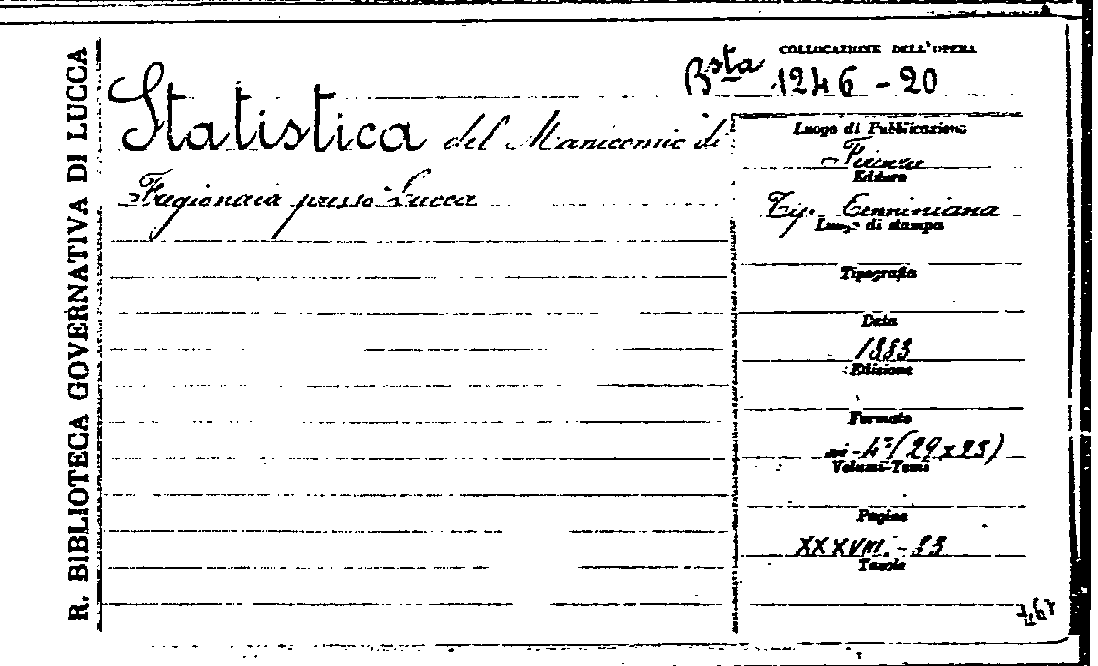 R. BIBLIOTECA GOVERNATIVA DI LUCCA
COLLOCAZIONE DELL'OPERA
Bsta 1246 - 20
Statistica del Manicomio di
Fregionaia presso Lucca
Luogo di Pubblicazione
Firenze
Editore
Tip. Cenniniana
Luogo di stampa
Tipografia
Data
1883
Edizione
Formato
in-4° (29x23)
Volumi-Tomi
Pagine
XXXVIII - 83
Tavole